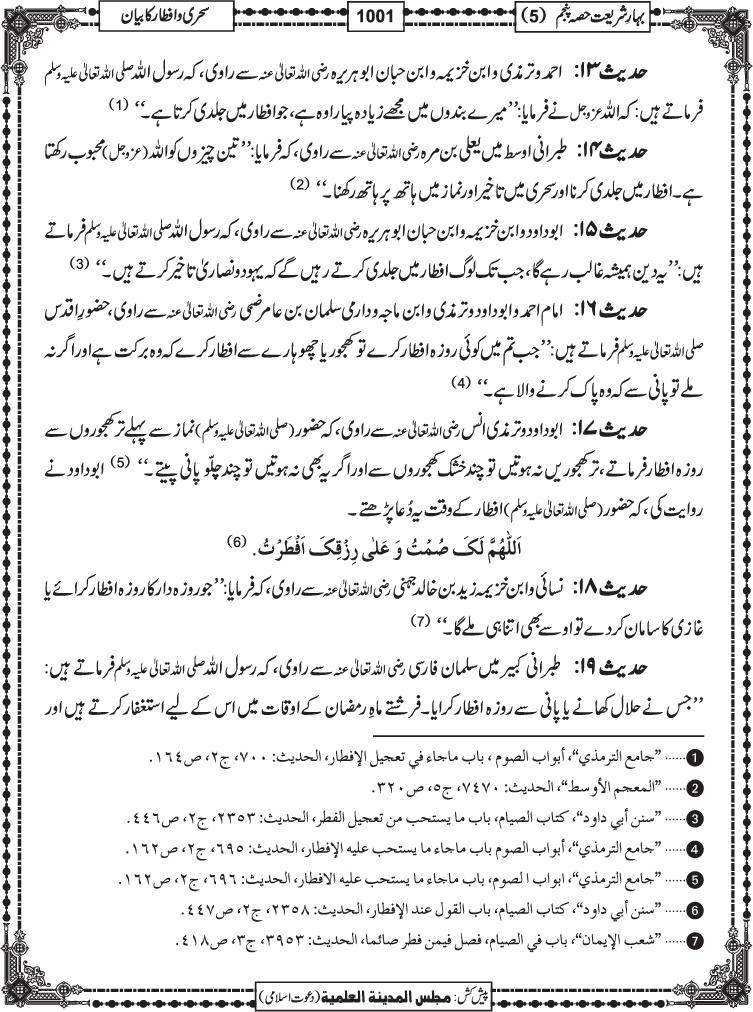 بہارِ شریعت حصہ پنجم (5)
1001
سحری و افطار کا بیان
حدیث ۱۳: احمد و ترمذی و ابن خزیمہ و ابن حبان ابو ہریرہ رضی اللہ تعالیٰ عنہ سے راوی، کہ رسول اللہ صلی اللہ تعالیٰ علیہ وسلم
فرماتے ہیں: کہ اللہ عزوجل نے فرمایا: ’’میرے بندوں میں مجھے زیادہ پیارا وہ ہے، جو افطار میں جلدی کرتا ہے۔‘‘ (1)
حدیث ۱۴: طبرانی اوسط میں یعلیٰ بن مرہ رضی اللہ تعالیٰ عنہ سے راوی، کہ فرمایا: ’’تین چیزوں کو اللہ (عزوجل) محبوب رکھتا
ہے۔ افطار میں جلدی کرنا اور سحری میں تاخیر اور نماز میں ہاتھ پر ہاتھ رکھنا۔‘‘ (2)
حدیث ۱۵: ابو داود و ابن خزیمہ و ابن حبان ابو ہریرہ رضی اللہ تعالیٰ عنہ سے راوی، کہ رسول اللہ صلی اللہ تعالیٰ علیہ وسلم فرماتے
ہیں: ’’یہ دین ہمیشہ غالب رہے گا، جب تک لوگ افطار میں جلدی کرتے رہیں گے کہ یہود و نصاریٰ تاخیر کرتے ہیں۔‘‘ (3)
حدیث ۱۶: امام احمد و ابو داود و ترمذی و ابن ماجہ و دارمی سلمان بن عامر ضبی رضی اللہ تعالیٰ عنہ سے راوی، حضورِ اقدس
صلی اللہ تعالیٰ علیہ وسلم فرماتے ہیں: ’’جب تم میں کوئی روزہ افطار کرے تو کھجور یا چھوہارے سے افطار کرے کہ وہ برکت ہے اور اگر نہ
ملے تو پانی سے کہ وہ پاک کرنے والا ہے۔‘‘ (4)
حدیث ۱۷: ابو داود و ترمذی انس رضی اللہ تعالیٰ عنہ سے راوی، کہ حضور (صلی اللہ تعالیٰ علیہ وسلم) نماز سے پہلے تر کھجوروں سے
روزہ افطار فرماتے، تر کھجوریں نہ ہوتیں تو چند خشک کھجوروں سے اور اگر یہ بھی نہ ہوتیں تو چند چلّو پانی پیتے۔‘‘ (5) ابو داود نے
روایت کی، کہ حضور (صلی اللہ تعالیٰ علیہ وسلم) افطار کے وقت یہ دُعا پڑھتے۔
اَللّٰھُمَّ لَکَ صُمْتُ وَ عَلٰی رِزْقِکَ اَفْطَرْتُ. (6)
حدیث ۱۸: نسائی و ابن خزیمہ زید بن خالد جہنی رضی اللہ تعالیٰ عنہ سے راوی، کہ فرمایا: ’’جو روزہ دار کا روزہ افطار کرائے یا
غازی کا سامان کر دے تو اوسے بھی اتنا ہی ملے گا۔‘‘ (7)
حدیث ۱۹: طبرانی کبیر میں سلمان فارسی رضی اللہ تعالیٰ عنہ سے راوی، کہ رسول اللہ صلی اللہ تعالیٰ علیہ وسلم فرماتے ہیں:
’’جس نے حلال کھانے یا پانی سے روزہ افطار کرایا۔ فرشتے ماہِ رمضان کے اوقات میں اس کے لیے استغفار کرتے ہیں اور
1 ...... ”جامع الترمذي“، أبواب الصوم ، باب ماجاء في تعجيل الإفطار، الحديث: ٧٠٠، ج٢، ص١٦٤.
2 ...... ”المعجم الأوسط“، الحديث: ٧٤٧٠، ج٥، ص٣٢٠.
3 ...... ”سنن أبي داود“، كتاب الصيام، باب ما يستحب من تعجيل الفطر، الحديث: ٢٣٥٣، ج٢، ص٤٤٦.
4 ...... ”جامع الترمذي“، أبواب الصوم باب ماجاء ما يستحب عليه الإفطار، الحديث: ٦٩٥، ج٢، ص١٦٢.
5 ...... ”جامع الترمذي“، ابواب الصوم، باب ماجاء ما يستحب عليه الافطار، الحديث: ٦٩٦، ج٢، ص١٦٢.
6 ...... ”سنن أبي داود“، كتاب الصيام، باب القول عند الإفطار، الحديث: ٢٣٥٨، ج٢، ص٤٤٧.
7 ...... ”شعب الإيمان“، باب في الصيام، فصل فيمن فطر صائما، الحديث: ٣٩٥٣، ج٣، ص٤١٨.
پیش کش: مجلس المدینة العلمیة (دعوت اسلامی)